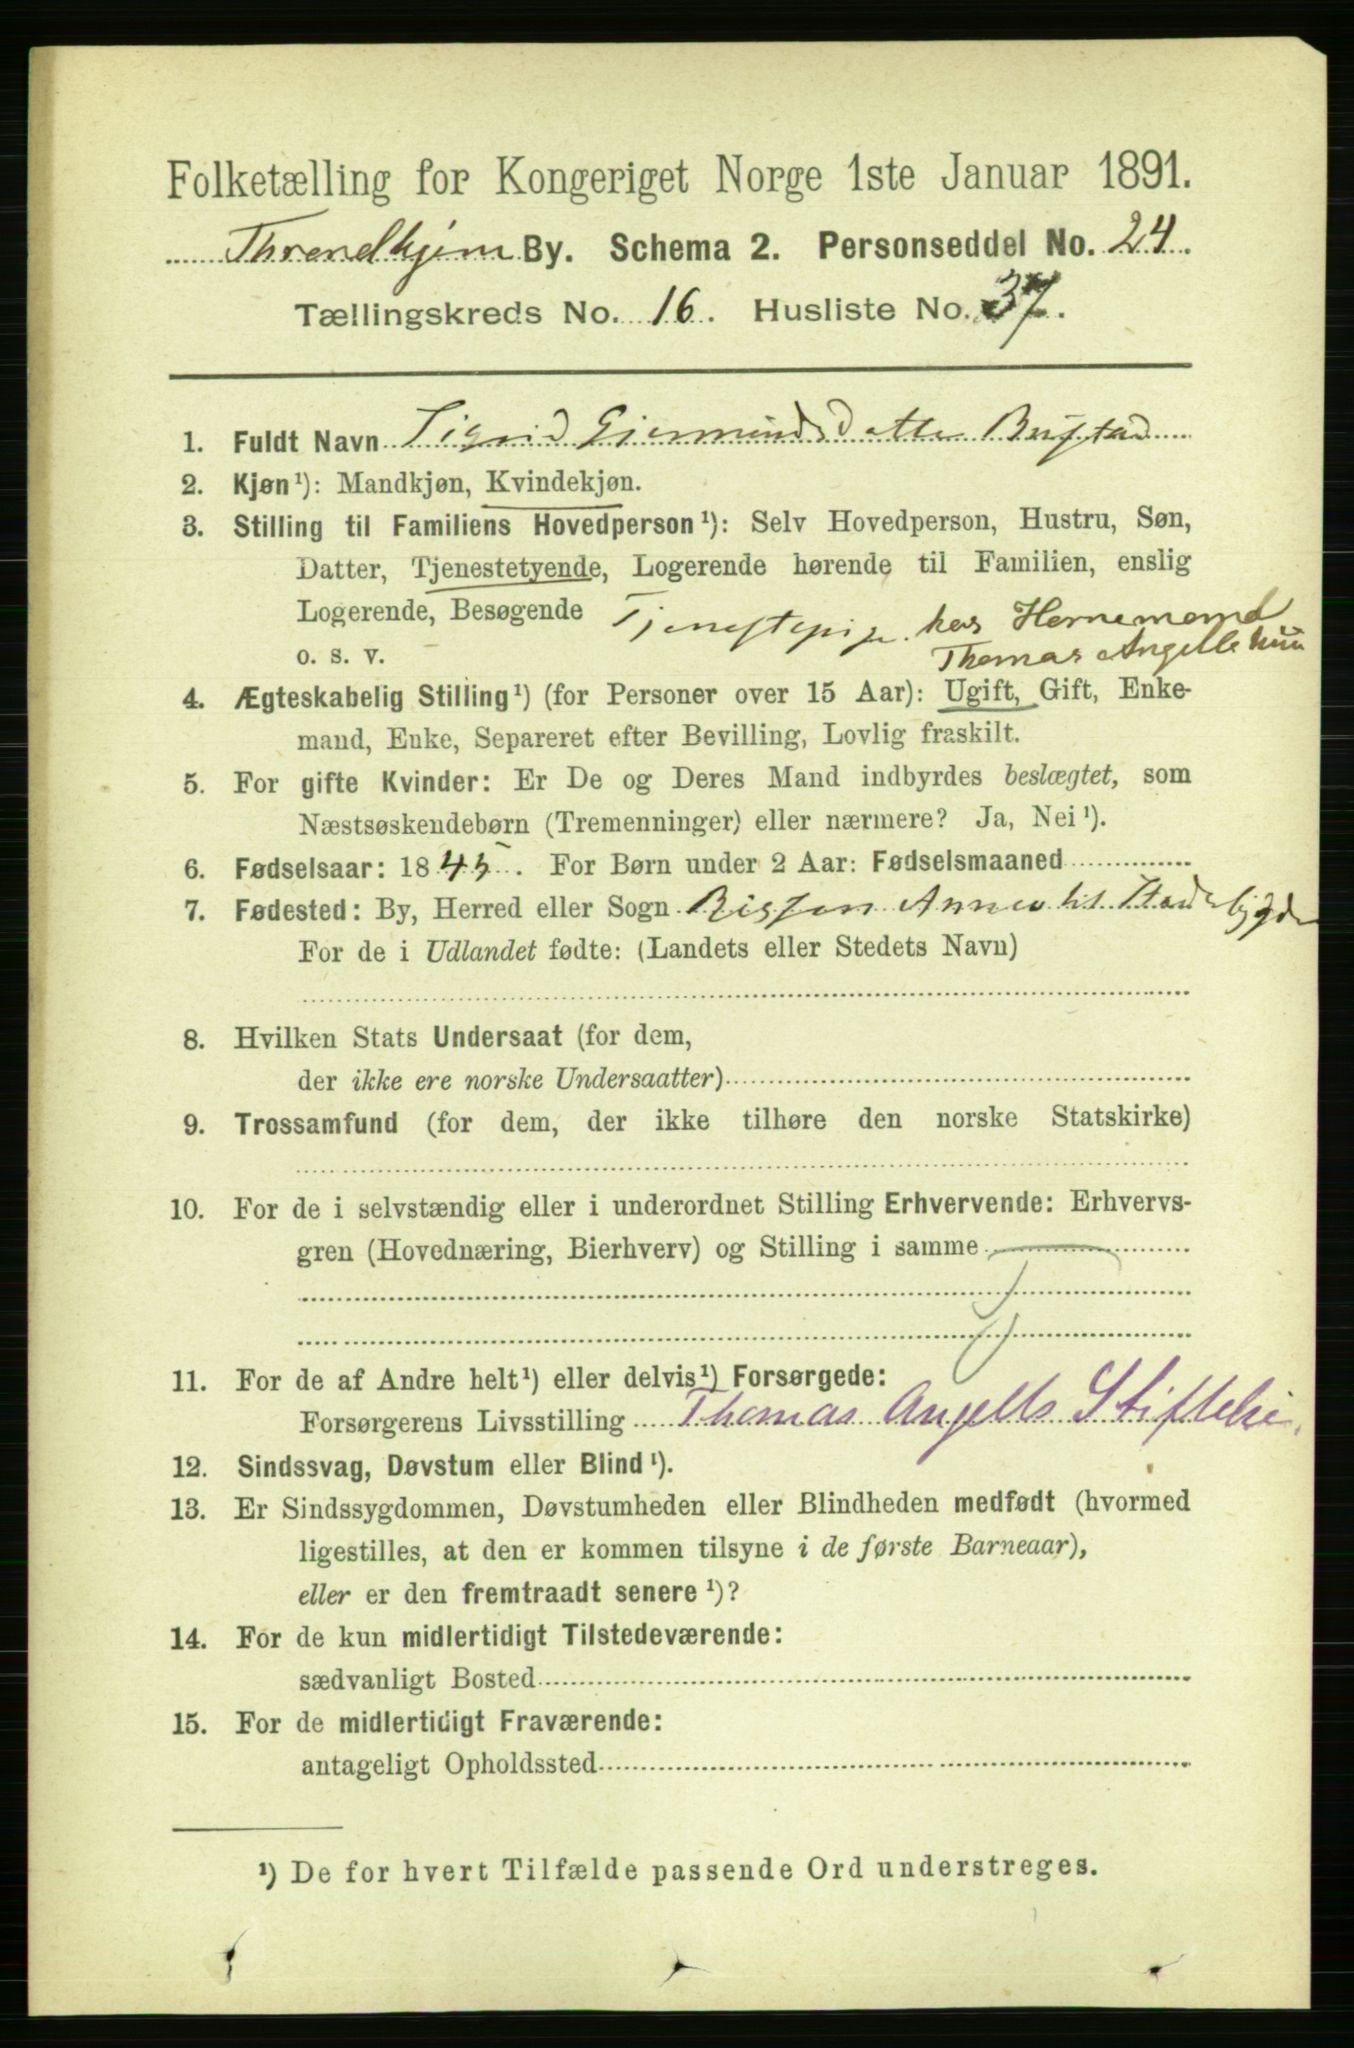 Folketælling for Kongeriget Norge 1ste Januar 1891.
Throndhjem By. Schema 2. Personseddel No. 24.
Tællingskreds No. 16. Husliste No. 37.
1. Fuldt Navn Sigrid Gjermundsdatter Bustad
2. Kjøn¹): Mandkjøn, Kvindekjøn.
3. Stilling til Familiens Hovedperson¹): Selv Hovedperson, Hustru, Søn,
Datter, Tjenestetyende, Logerende hørende til Familien, enslig
Logerende, Besøgende Tjenestepige hos Hornemand
o. s. v. Thomas Angells
4. Ægteskabelig Stilling¹) (for Personer over 15 Aar): Ugift, Gift, Enke-
mand, Enke, Separeret efter Bevilling, Lovlig fraskilt.
5. For gifte Kvinder: Er De og Deres Mand indbyrdes beslægtet, som
Næstsøskendebørn (Tremenninger) eller nærmere? Ja, Nei¹).
6. Fødselsaar: 1845. For Børn under 2 Aar: Fødselsmaaned
7. Fødested: By, Herred eller Sogn Rissen Annex til Stadsbygden
For de i Udlandet fødte: (Landets eller Stedets Navn)
8. Hvilken Stats Undersaat (for dem,
der ikke ere norske Undersaatter)
9. Trossamfund (for dem, der ikke tilhøre den norske Statskirke)
10. For de i selvstændig eller i underordnet Stilling Erhvervende: Erhvervs-
gren (Hovednæring, Bierhverv) og Stilling i samme
11. For de af Andre helt¹) eller delvis¹) Forsørgede:
Forsørgerens Livsstilling Thomas Angells Stiftelse.
12. Sindssvag, Døvstum eller Blind¹).
13. Er Sindssygdommen, Døvstumheden eller Blindheden medfødt (hvormed
ligestilles, at den er kommen tilsyne i de første Barneaar),
eller er den fremtraadt senere¹)?
14. For de kun midlertidigt Tilstedeværende:
sædvanligt Bosted
15. For de midlertidigt Fraværende:
antageligt Opholdssted
¹) De for hvert Tilfælde passende Ord understreges.